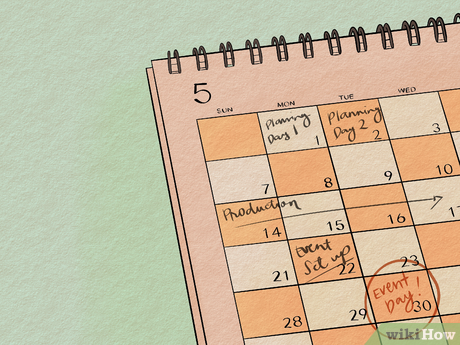 5
SUN MON TUE WED
Planning
Day 1
1
Planning
Day 2
2
3
7 8 9 10
Production
14 15 16 17
Event
Set up
21 22 23
Event
Day!
28 29 30
wikiHow